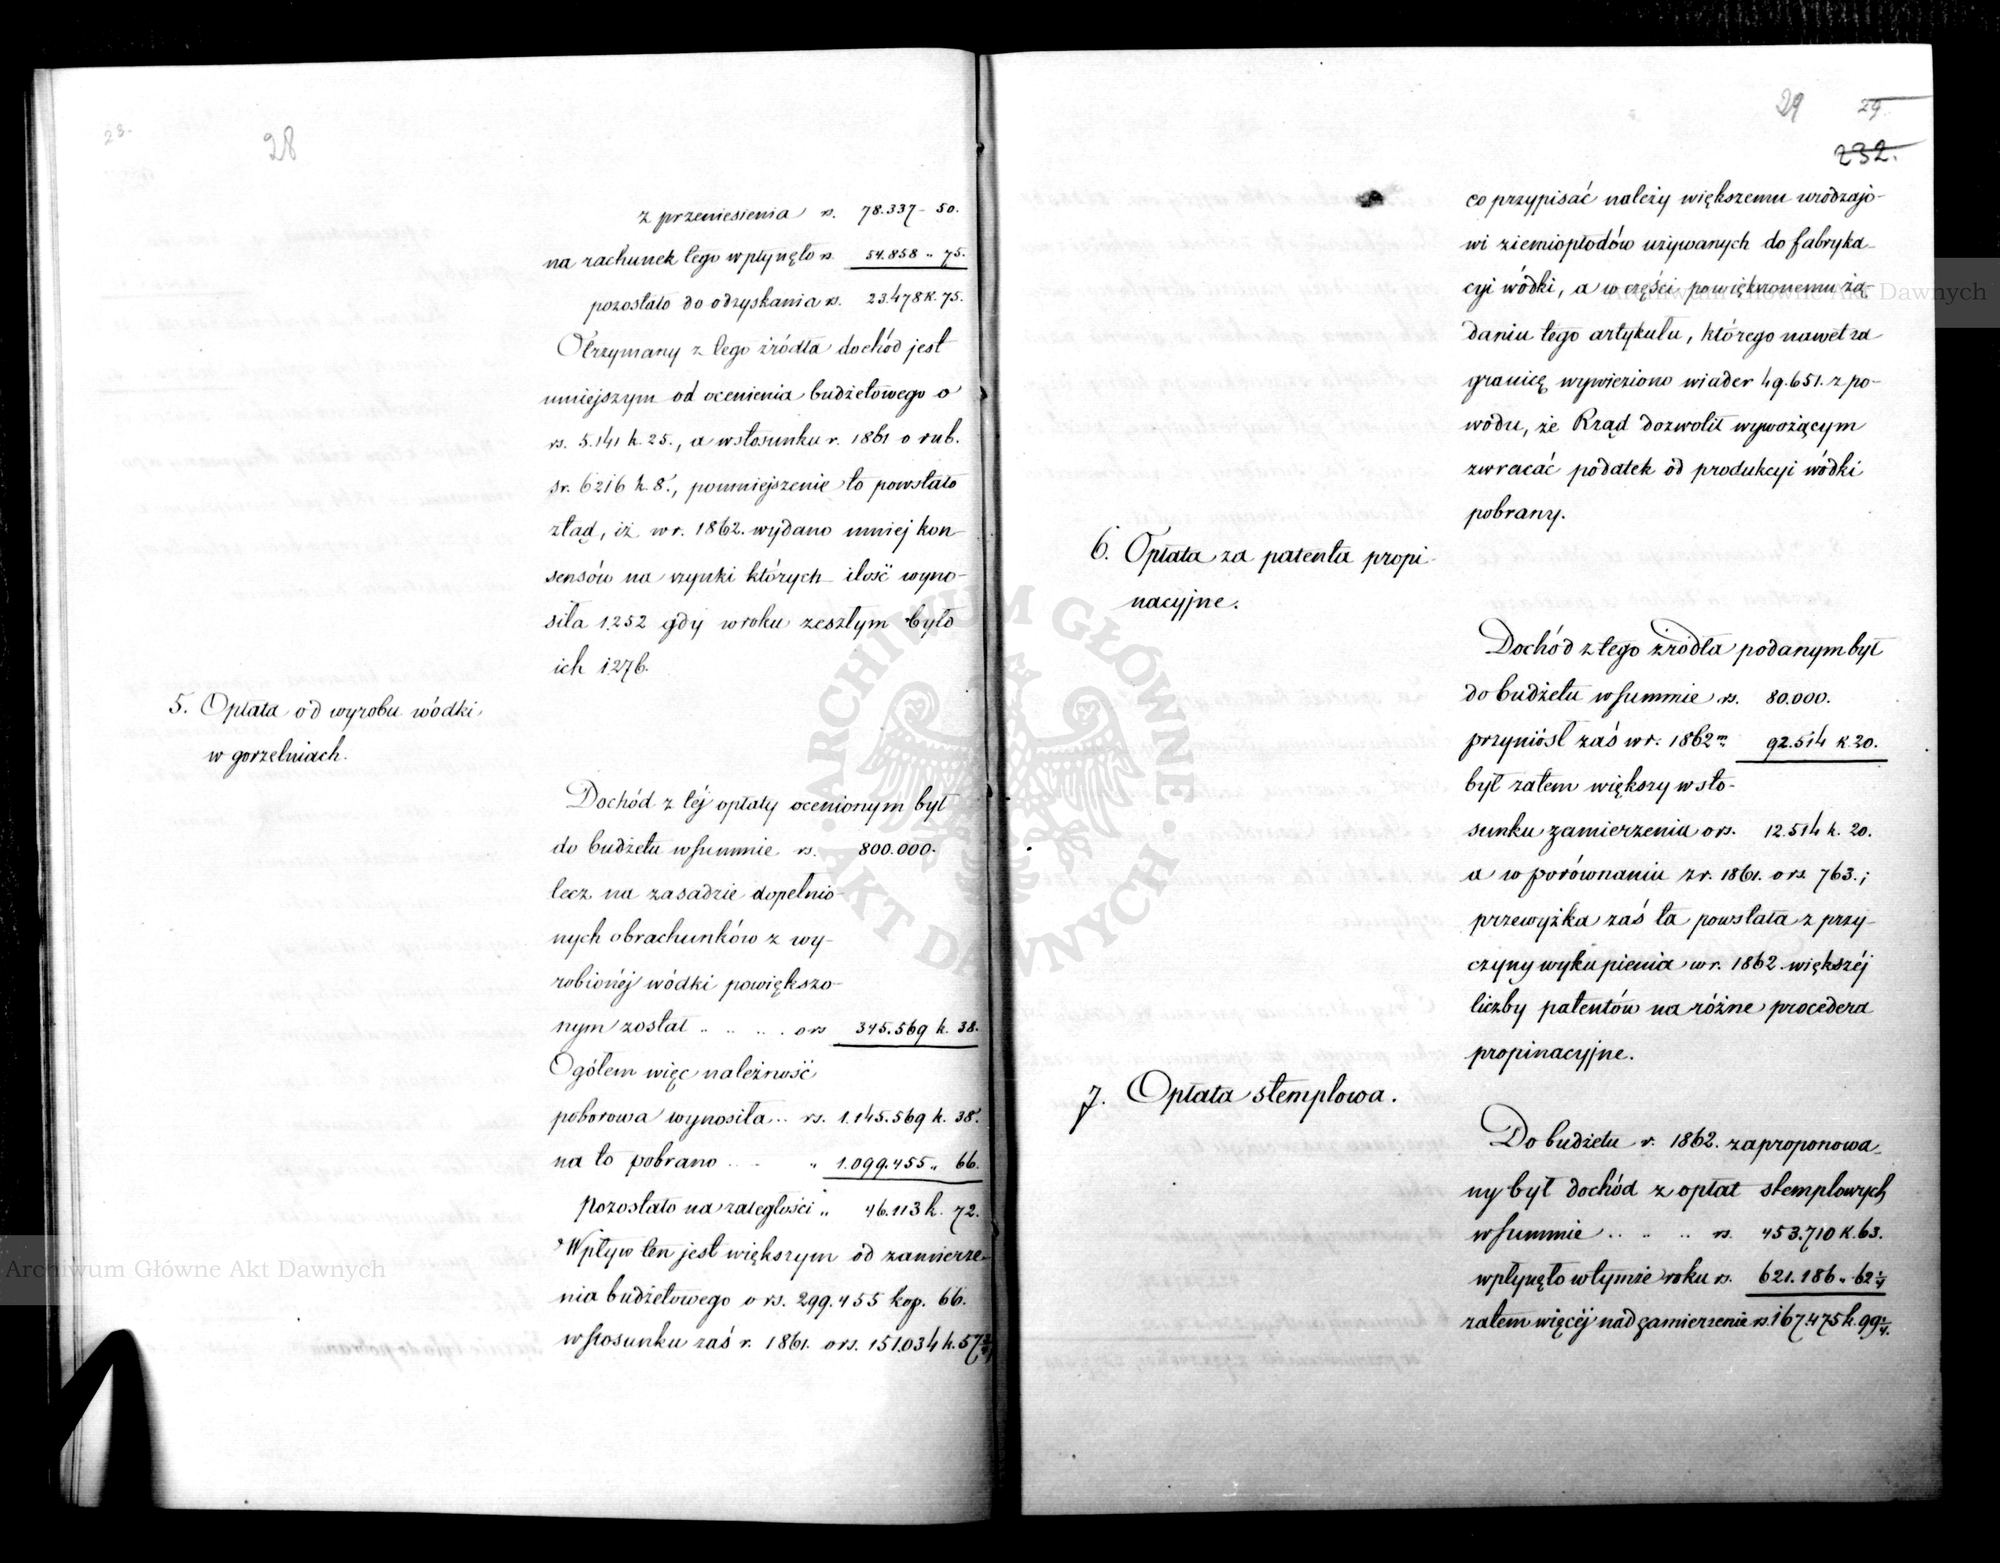 28
z przeniesienia rs. 78.337 - 50.
na rachunek tego wpłynęło rs. 54.858 „ 75.
pozostało do odzyskania rs. 23.478 k. 75.
Otrzymany z tego źródła dochód jest
mniejszym od ocenienia budżetowego o
rs. 5.141 k. 25., a w stosunku r. 1861 o rub.
sr. 6216 k. 8., pomniejszenie to powstało
ztąd, iż w r. 1862. wydano mniej kon-
sensów na szynki których ilość wyno-
siła 1.252 gdy w roku zeszłym było
ich 1276.
5. Opłata od wyrobu wódki
w gorzelniach.
Dochód z téj opłaty ocenionym był
do budżetu w summie rs. 800.000.
lecz na zasadzie dopełnio-
nych obrachunków z wy-
robionéj wódki powiększo-
nym został .. .. .. o rs 345.569 k. 38.
Ogółem więc należność
poborowa wynosiła .. rs. 1.145.569 k. 38.
na to pobrano .. „ 1.099.455 „ 66.
pozostało na zaległości „ 46.113 k. 72.
Wpływ ten jest większym od zamierze-
nia budżetowego o rs. 299.455 kop. 66.
w stosunku zaś r. 1861. o rs. 151.034 k. 57
29 29
232.
co przypisać należy większemu urodzajo-
wi ziemiopłodów używanych do fabryka-
cyi wódki, a w części powiększonemu żą-
daniu tego artykułu, którego nawet za
granicę wywieziono wiader 49.651. z po-
wodu, że Rząd dozwolił wywożącym
zwracać podatek od produkcyi wódki
pobrany.
6. Opłata za patenta propi-
nacyjne.
Dochód z tego źródła podanym był
do budżetu w summie rs. 80.000.
przyniósł zaś w r. 1862 m 92.514 k. 20.
był zatem większy w sto-
sunku zamierzenia o rs. 12.514 k. 20.
a w porównaniu z r. 1861. o rs 763.;
przewyżka zaś ta powstała z przy-
czyny wykupienia w r. 1862. większéj
liczby patentów na różne procedera
propinacyjne.
7. Opłata stemplowa.
Do budżetu r. 1862. zaproponowa-
ny był dochód z opłat stemplowych
w summie .. .. .. rs. 453.710 k. 63.
wpłynęło w tymże roku rs. 621.186 „ 62 1/4
zatem więcéj nad zamierzenie rs. 167.475 k. 99 1/4.
Archiwum Główne Akt Dawnych
Archiwum Główne Akt Dawnych
ARCHIWUM GŁÓWNE · AKT DAWNYCH ·